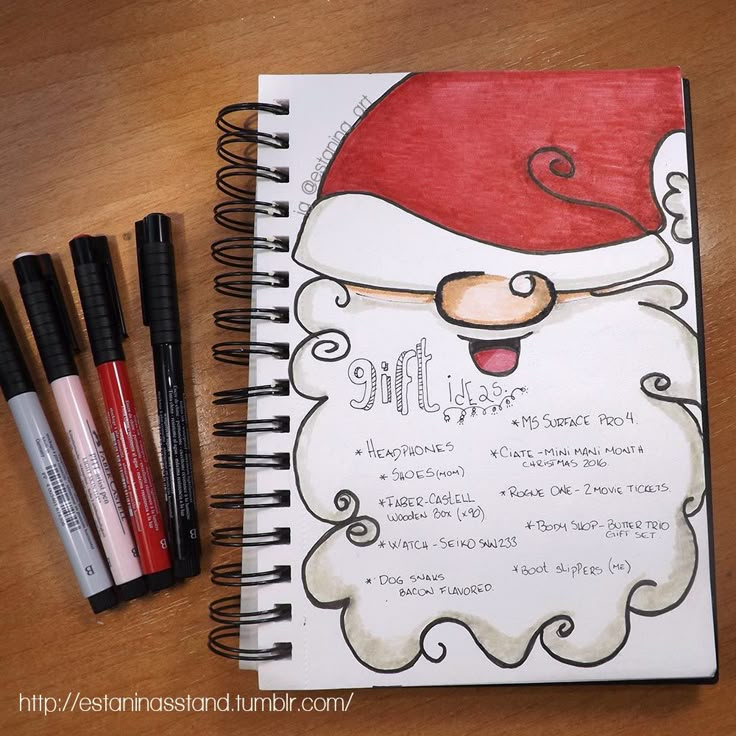 ig @estanina_art
gift ideas.
* HEADPHONES
* SHOES (MOM)
* FABER-CASTELL
WOODEN BOX (x90)
* WATCH - SEIKO SNN233
* DOG SNAKS
BACON FLAVORED.
* MS SURFACE PRO 4.
* CIATE - MINI MANI MONTH
CHRISTMAS 2016
* ROGUE ONE - 2 MOVIE TICKETS.
* BODY SHOP - BUTTER TRIO
GIFT SET
* BOOT SLIPPERS (ME)
http://estaninasstand.tumblr.com/